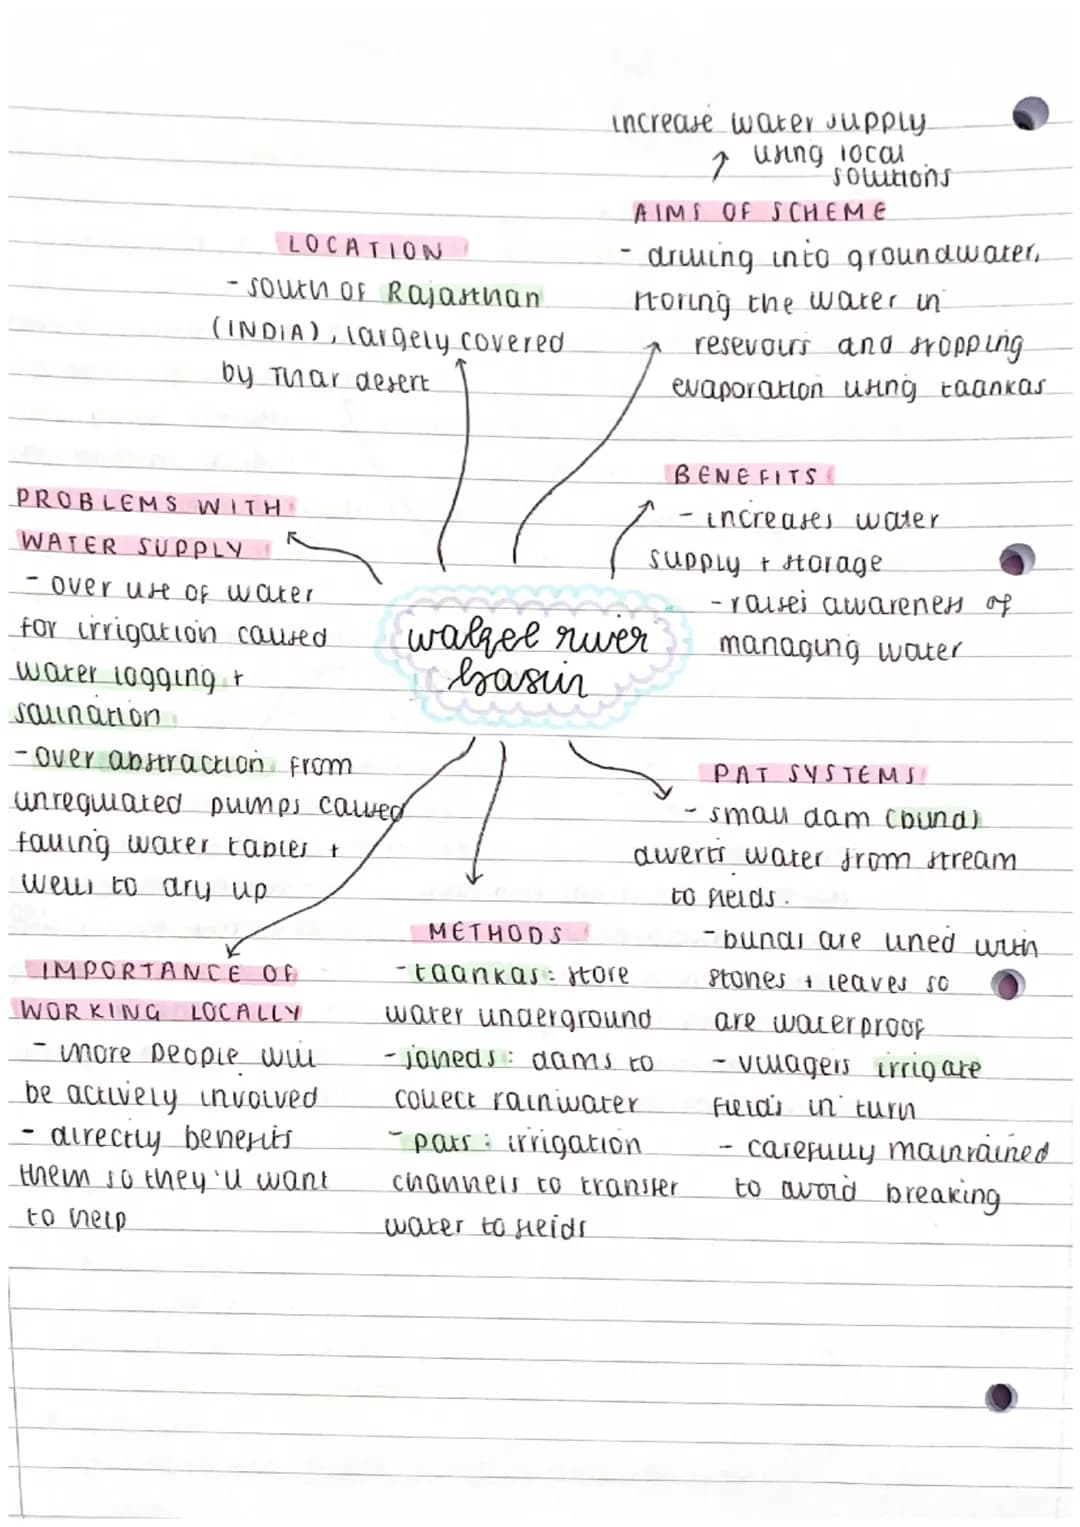 increase water supply
using local
solutions
AIMS OF SCHEME
- drilling into groundwater,
storing the water in
resevours and stopping
evaporation using taankas
LOCATION
- south of Rajasthan
(INDIA), largely covered
by Thar desert
BENEFITS
- increases water
supply + storage
- raises awareness of
managing water
PROBLEMS WITH
WATER SUPPLY
- over use of water
for irrigation caused
water logging +
salination
- over abstraction from
unregulated pumps caused
falling water tables +
wells to dry up
walgel river
basin
PAT SYSTEMS
- small dam (bund)
diverts water from stream
to fields.
- bunds are lined with
stones + leaves so
are waterproof
- villagers irrigate
fields in turn
- carefully maintained
to avoid breaking
METHODS
- taankas: store
water underground
- joheds: dams to
collect rainwater
- pats: irrigation
channels to transfer
water to fields
IMPORTANCE OF
WORKING LOCALLY
- more people will
be actively involved
- directly benefits
them so they'll want
to help